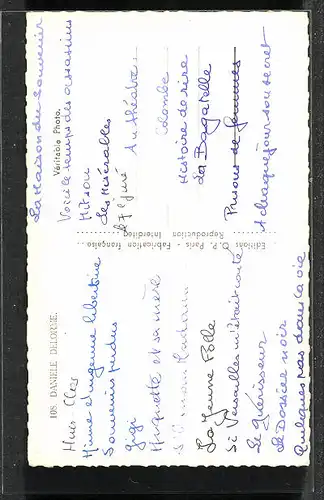 108. DANIELE DELORME.
Huis Clos
Minne et ingenue libertine
Souvenirs perdus
gigi
Huguette et sa mère
La Jeune Folle
Si Versailles m'était conté
Le Guérisseur
Le Dossier noir
Quelques pas dans la vie
Editions O. P. Paris - Fabrication française
Reproduction Interdite
La Maison du souvenir
Véritable Photo.
Voici le temps des assassins
Mitsou
Les Misérables
Le 7e Juré
Au théâtre:
Colombe
Histoire de rire
La Bagatelle
Prisons de femmes
A chaque jour son secret